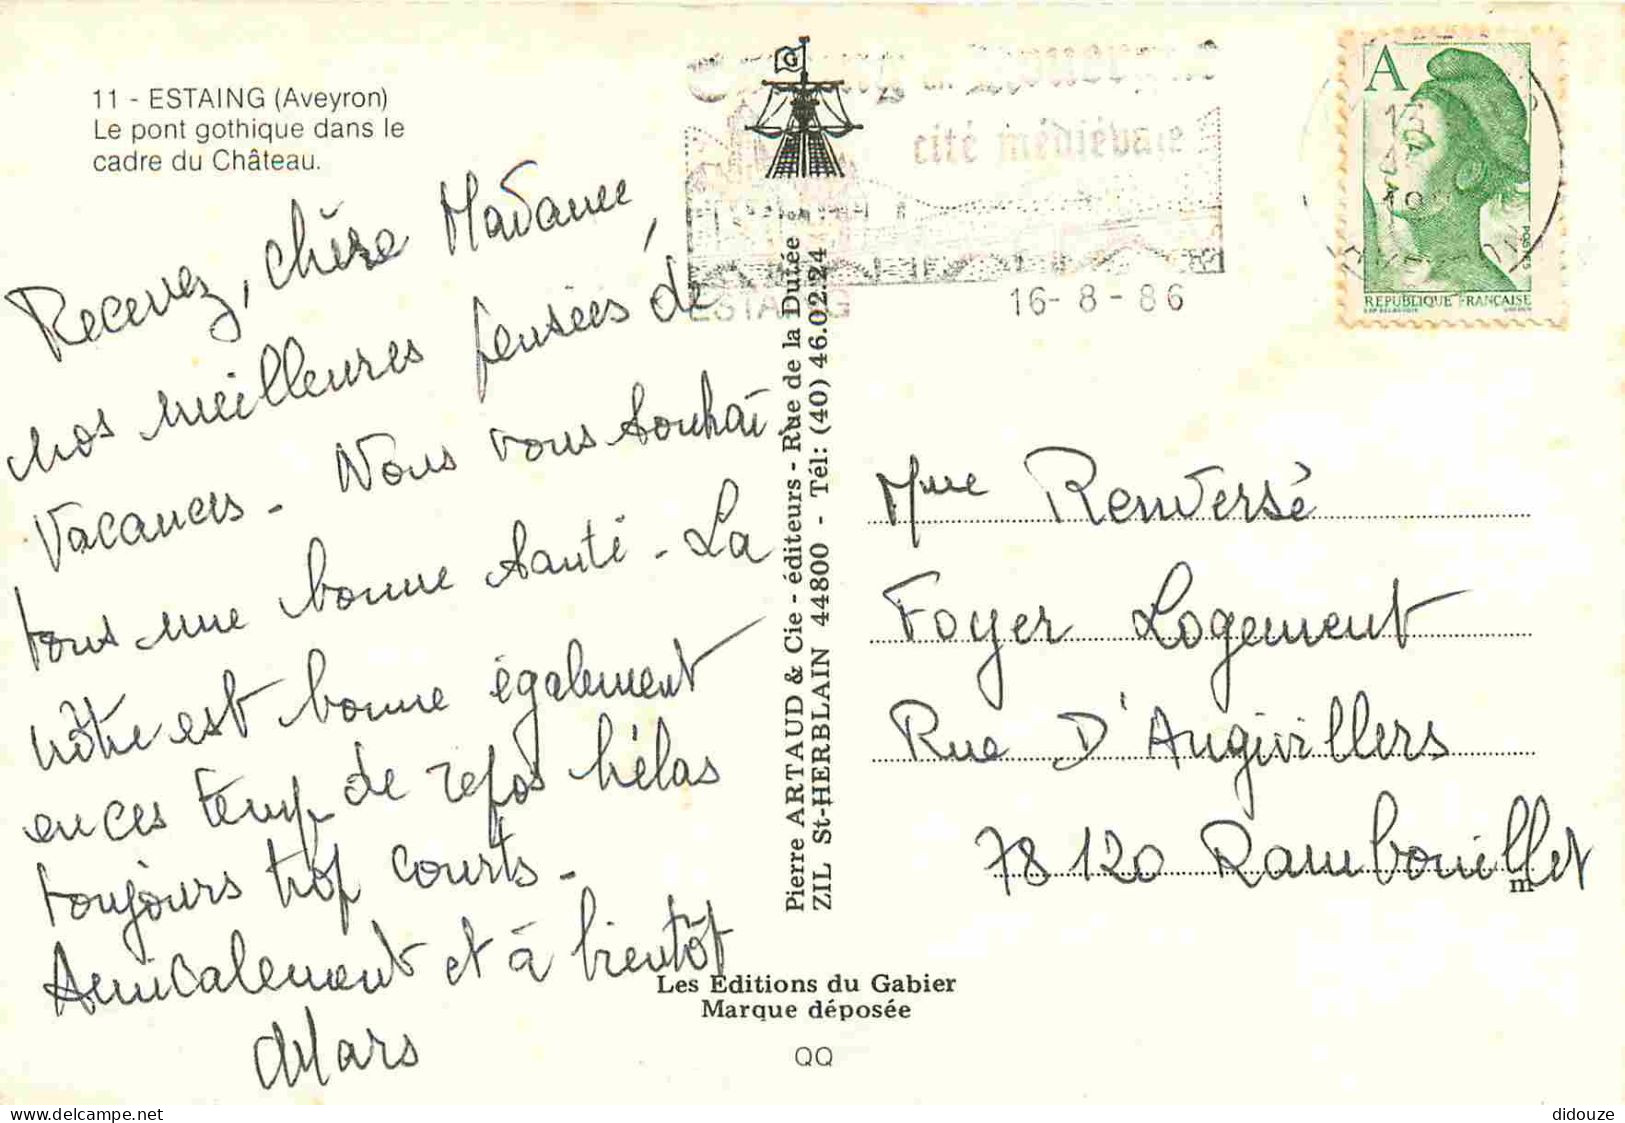 11 - ESTAING (Aveyron)
Le pont gothique dans le
cadre du Château.
Recevez, chère Madame,
nos meilleures pensées de
vacances - Nous vous souhai
tons une bonne santé - La
nôtre est bonne également
en ces temps de repos hélas
toujours trop courts -
Amicalement et à bientôt
G
cité médiévale
ESTAING
16-8-86
A
REPUBLIQUE FRANÇAISE
Pierre ARTAUD & Cie - éditeurs - Rue de la Dutée
ZIL St-HERBLAIN 44800 - Tél: (40) 46.02.24
Mme Renversé
Foyer Logement
Rue D'Angivillers
78120 Rambouillet
m
Les Editions du Gabier
Marque déposée
QQ
delcampe.net
didouze